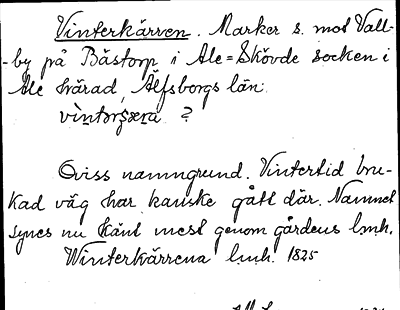 Vinterkärren. Marker s. mot Vall-
-by på Båstorp i Ale=Skövde socken i
Ale härad, Älfsborgs län.
?
Oviss namngrund. Vintertid bru-
kad väg har kanske gått där. Namnet
synes nu känt mest genom gårdens lmh.
Winterkärrena lmh. 1825